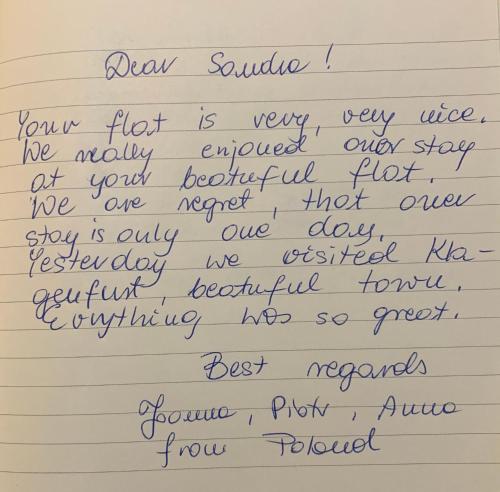 Dear Sandra!
Your flat is very, very nice.
We really enjoued over stay
at your beatuful flat.
We are regret, that over
stay is only one day.
Yesterday we visited Kla-
genfurt, beatuful town.
Evrything was so great.
Best regards
Joanna, Piotr, Anna
from Poland